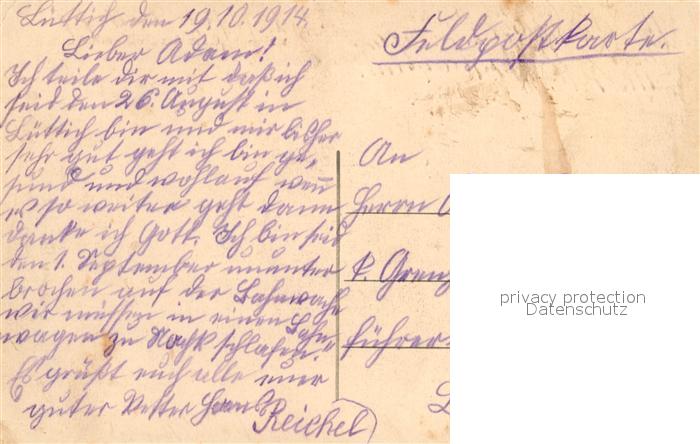 Lüttich den 19.10.1914.
Lieber Adam!
Ich teile dir mit daß ich
seid den 26. August in
Lüttich bin und mir bisher
sehr gut geht ich bin ge-
sund und wohlauf wenn
es so weiter geht dann
danke ich Gott. Ich bin seid
den 1. September ununter
brochen auf der Bahnwache
wir müssen in einen Bahn-
wagen zu Nacht schlafen.
Es grüßt euch alle euer
guter Vetter Hans
Reichel
Feldpostkarte.
An
Herrn
k. Grenz
führer
privacy protection
Datenschutz